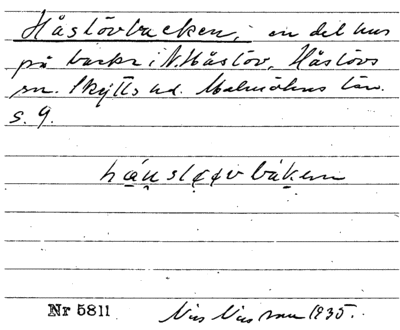 Håslövbacken, en del hus
på backe i N. Håslöv, Håslövs
sn. Skytts hd. Malmöhus län.
s. 9.
Nr 5811 Nils Nilsson 1935.